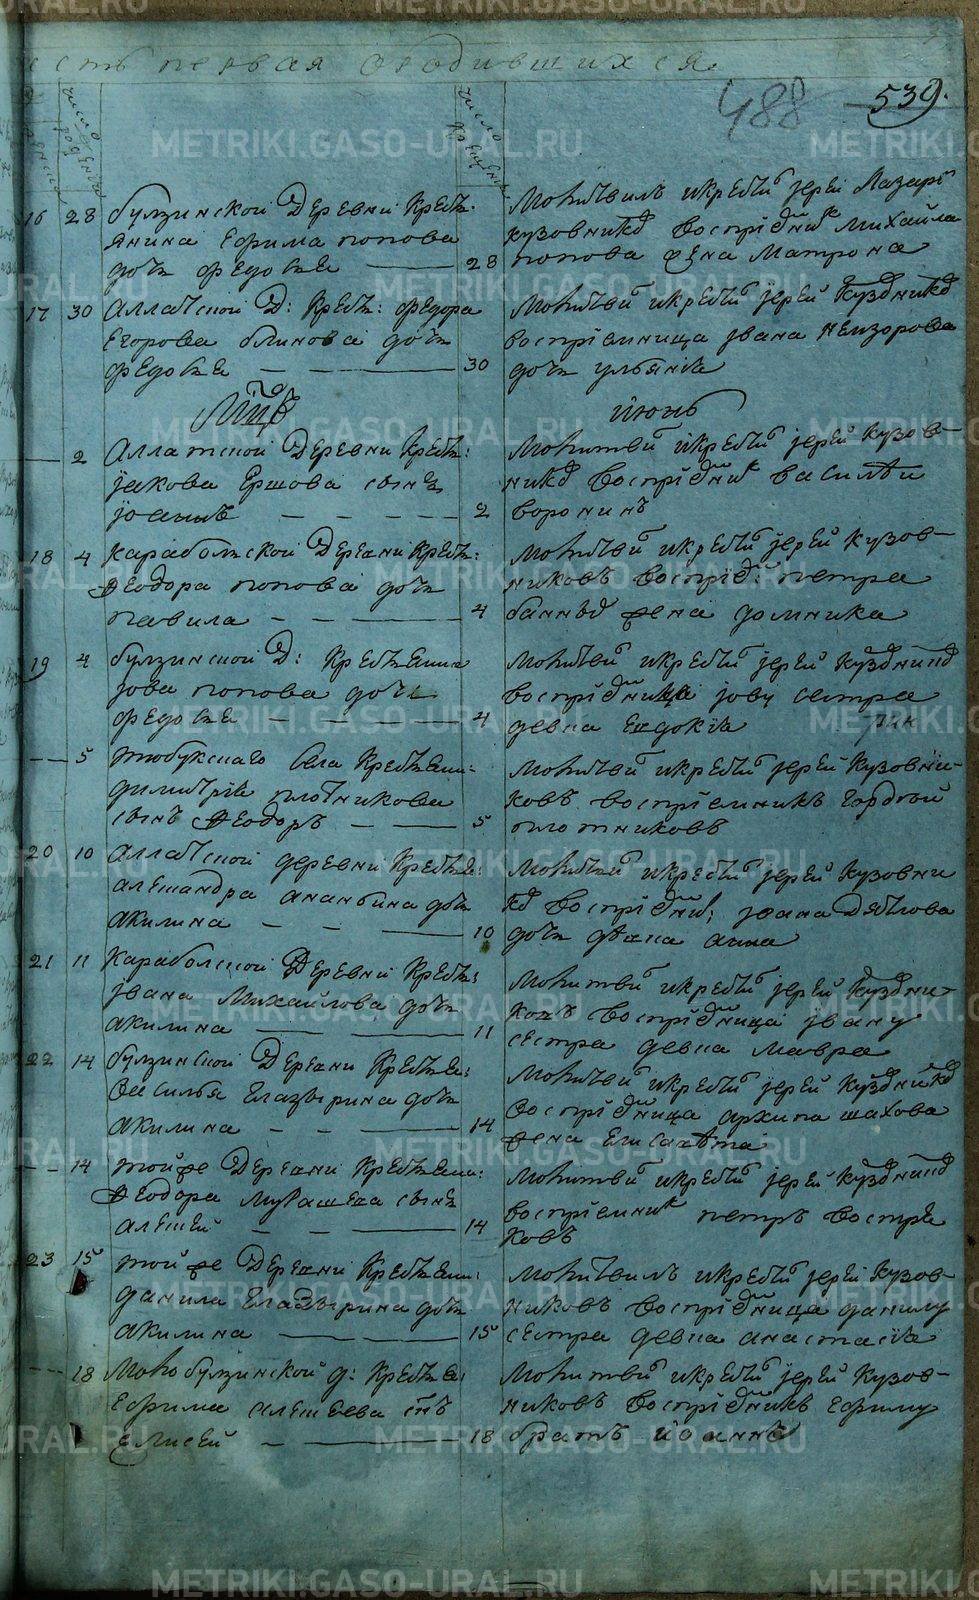 сть первая о родившихся
488 539.
число рожденія
число крещенія
16 28 булзинской Деревни Крестъ
янина Ефима попова
дочь федосія 28
Молитвилъ и крестилъ іерей Лазарь
кузовников воспріемник Михаила
попова жена Матрона
17 30 Аллатской Д: Крест: федора
Егорова блинова дочь
федосія 30
Молитвил и крестил іерей Кузовников
воспріемница Івана
дочь ульянія
Іюнь
2 Аллатской Деревни Крест:
Іакова Ершова сынъ
Іоаннъ 2
Молитвил и крестил іерей кузов-
ников воспріемник василій
воронинъ
18 4 Карабольской Деревни Крест:
Феодора попова дочь
павила 4
Молитвил и крестил іерей кузов-
никовъ воспріем петра
жена домника
19 4 булзинской Д: Крестьянина
Іова попова дочь
федосія 4
Молитвил и крестил іерей Кузовников
воспріемница Іову сестра
девка Евдокія
5 тюбукскаго села Крестьяни-
димитрія плотникова
сынъ Феодоръ 5
Молитвил и крестил іерей Кузовни-
ковъ воспріемникъ Гордѣй
плотниковъ
20 10 Аллатской деревни Крестья:
алеѯандра ананьина дочь
акилина 10
Молитвил и крестил іерей Кузовни
ков воспріемни; Іоана Дятлова
дочь девка анна
21 11 Караболской Деревни Крест:
Івана Михаилова дочь
акилина 11
Молитвил и крестил іерей Кузовни-
ковъ воспріемница Івану
сестра девка мавра
22 14 булзинской Деревни Крестья:
Василья Глазырина дочь
акилина 14
Молитвил и крестил іерей Кузовников
воспріемница архипа шахова
жена Елисавета
14 той же Деревни Крестьяни:
Феодора Мурашева сынъ
алеѯей 14
Молитвил и крестил іерей Кузовников
воспріемник петръ востря
ковъ
23 15 той же Деревни Крестьяни:
данила Глазырина дочь
акилина 15
Молитвилъ и крестил іерей Кузов-
никовъ воспріемница данилу
сестра девка анастасія
18 Малобулзинской д: Крестья:
Ефима алеѯеева снъ
Елисей 18
Молитвил и крестил іерей Кузов-
никовъ воспріемникъ Ефиму
братъ іоаннъ
METRIKI.GASO-URAL.RU